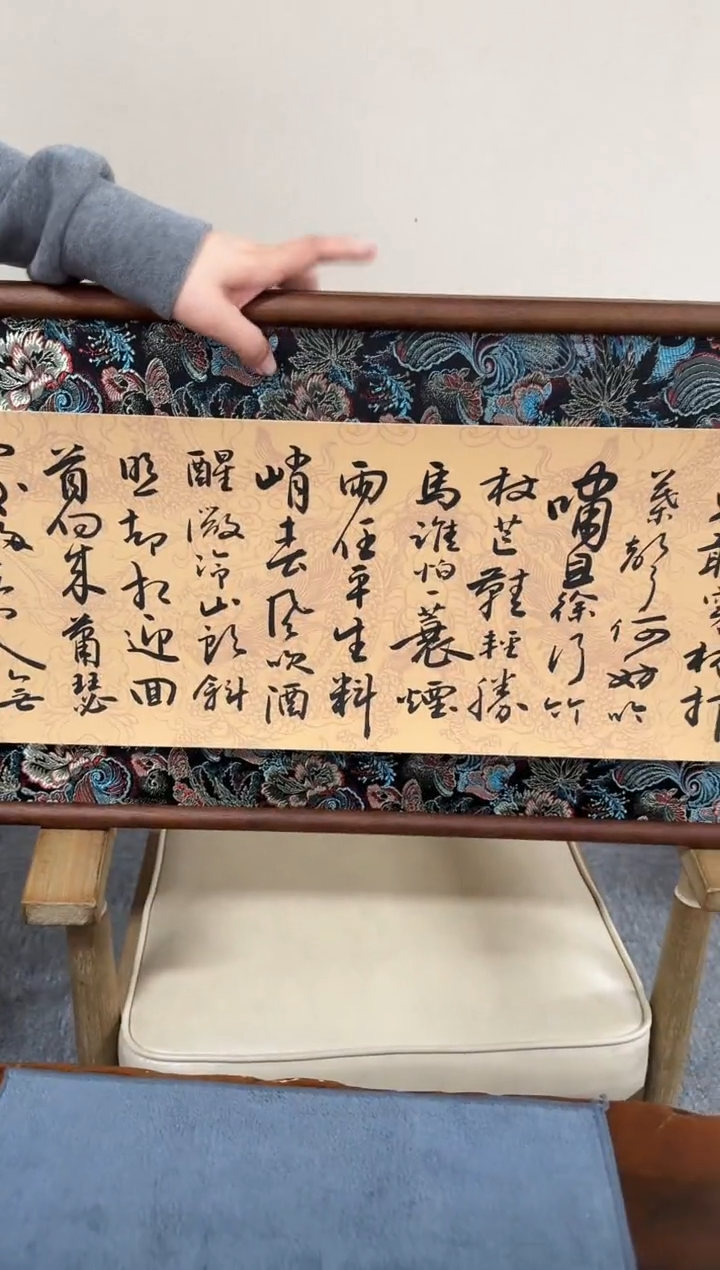 穿林打
葉聲何妨吟
嘯且徐行竹
杖芒鞋輕勝
馬誰怕一蓑煙
雨任平生料
峭春風吹酒
醒微冷山頭斜
照却相迎回
首向來蕭瑟
無